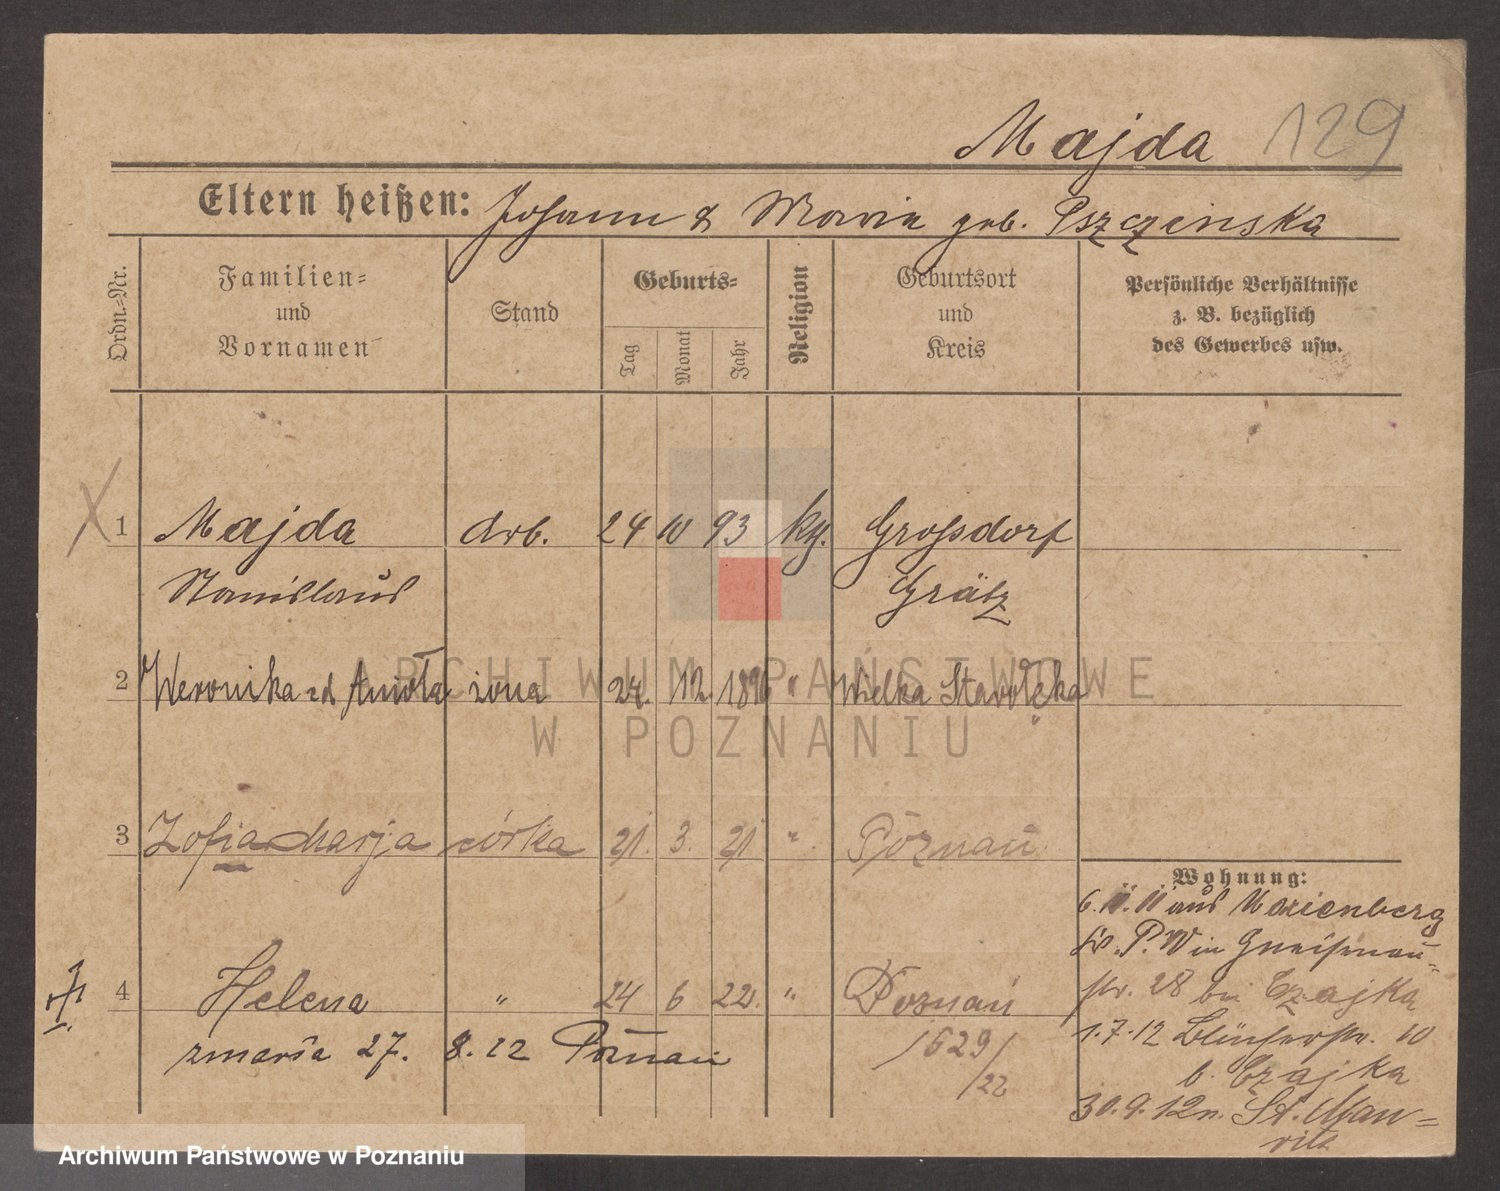 Majda 129
Eltern heißen: Johann & Maria geb. Pszczinska
Ordn.-Nr.
Familien-
und
Vornamen
Stand
Geburts-
Tag
Monat
Jahr
Religion
Geburtsort
und
Kreis
Persönliche Verhältnisse
z. B. bezüglich
des Gewerbes usw.
X 1 Majda Arb. 24 10 93 kg. Grossdorf
Stanislaus Grätz
2 Weronika zd Amoła żona 24. 12. 1896 " Wielka Starołęka
3 Zofia Marja córka 21. 3. 21 " Poznań
Wohnung:
6. 11. 11 aus Marienberg
Kr. P. W in Gneisenau-
4 Helena " 24 6 22. " Poznań
str. 28 bei Czajka
zmarła 27. 8. 22 Poznań
1629/22
1.7.12 Blücherstr. 10
b. Czajka
30.9.12 n. St. Mau-
ritz
ARCHIWUM PAŃSTWOWE
W POZNANIU
Archiwum Państwowe w Poznaniu